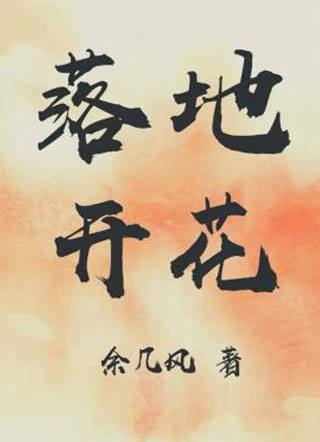 落地
开花
余几风 著